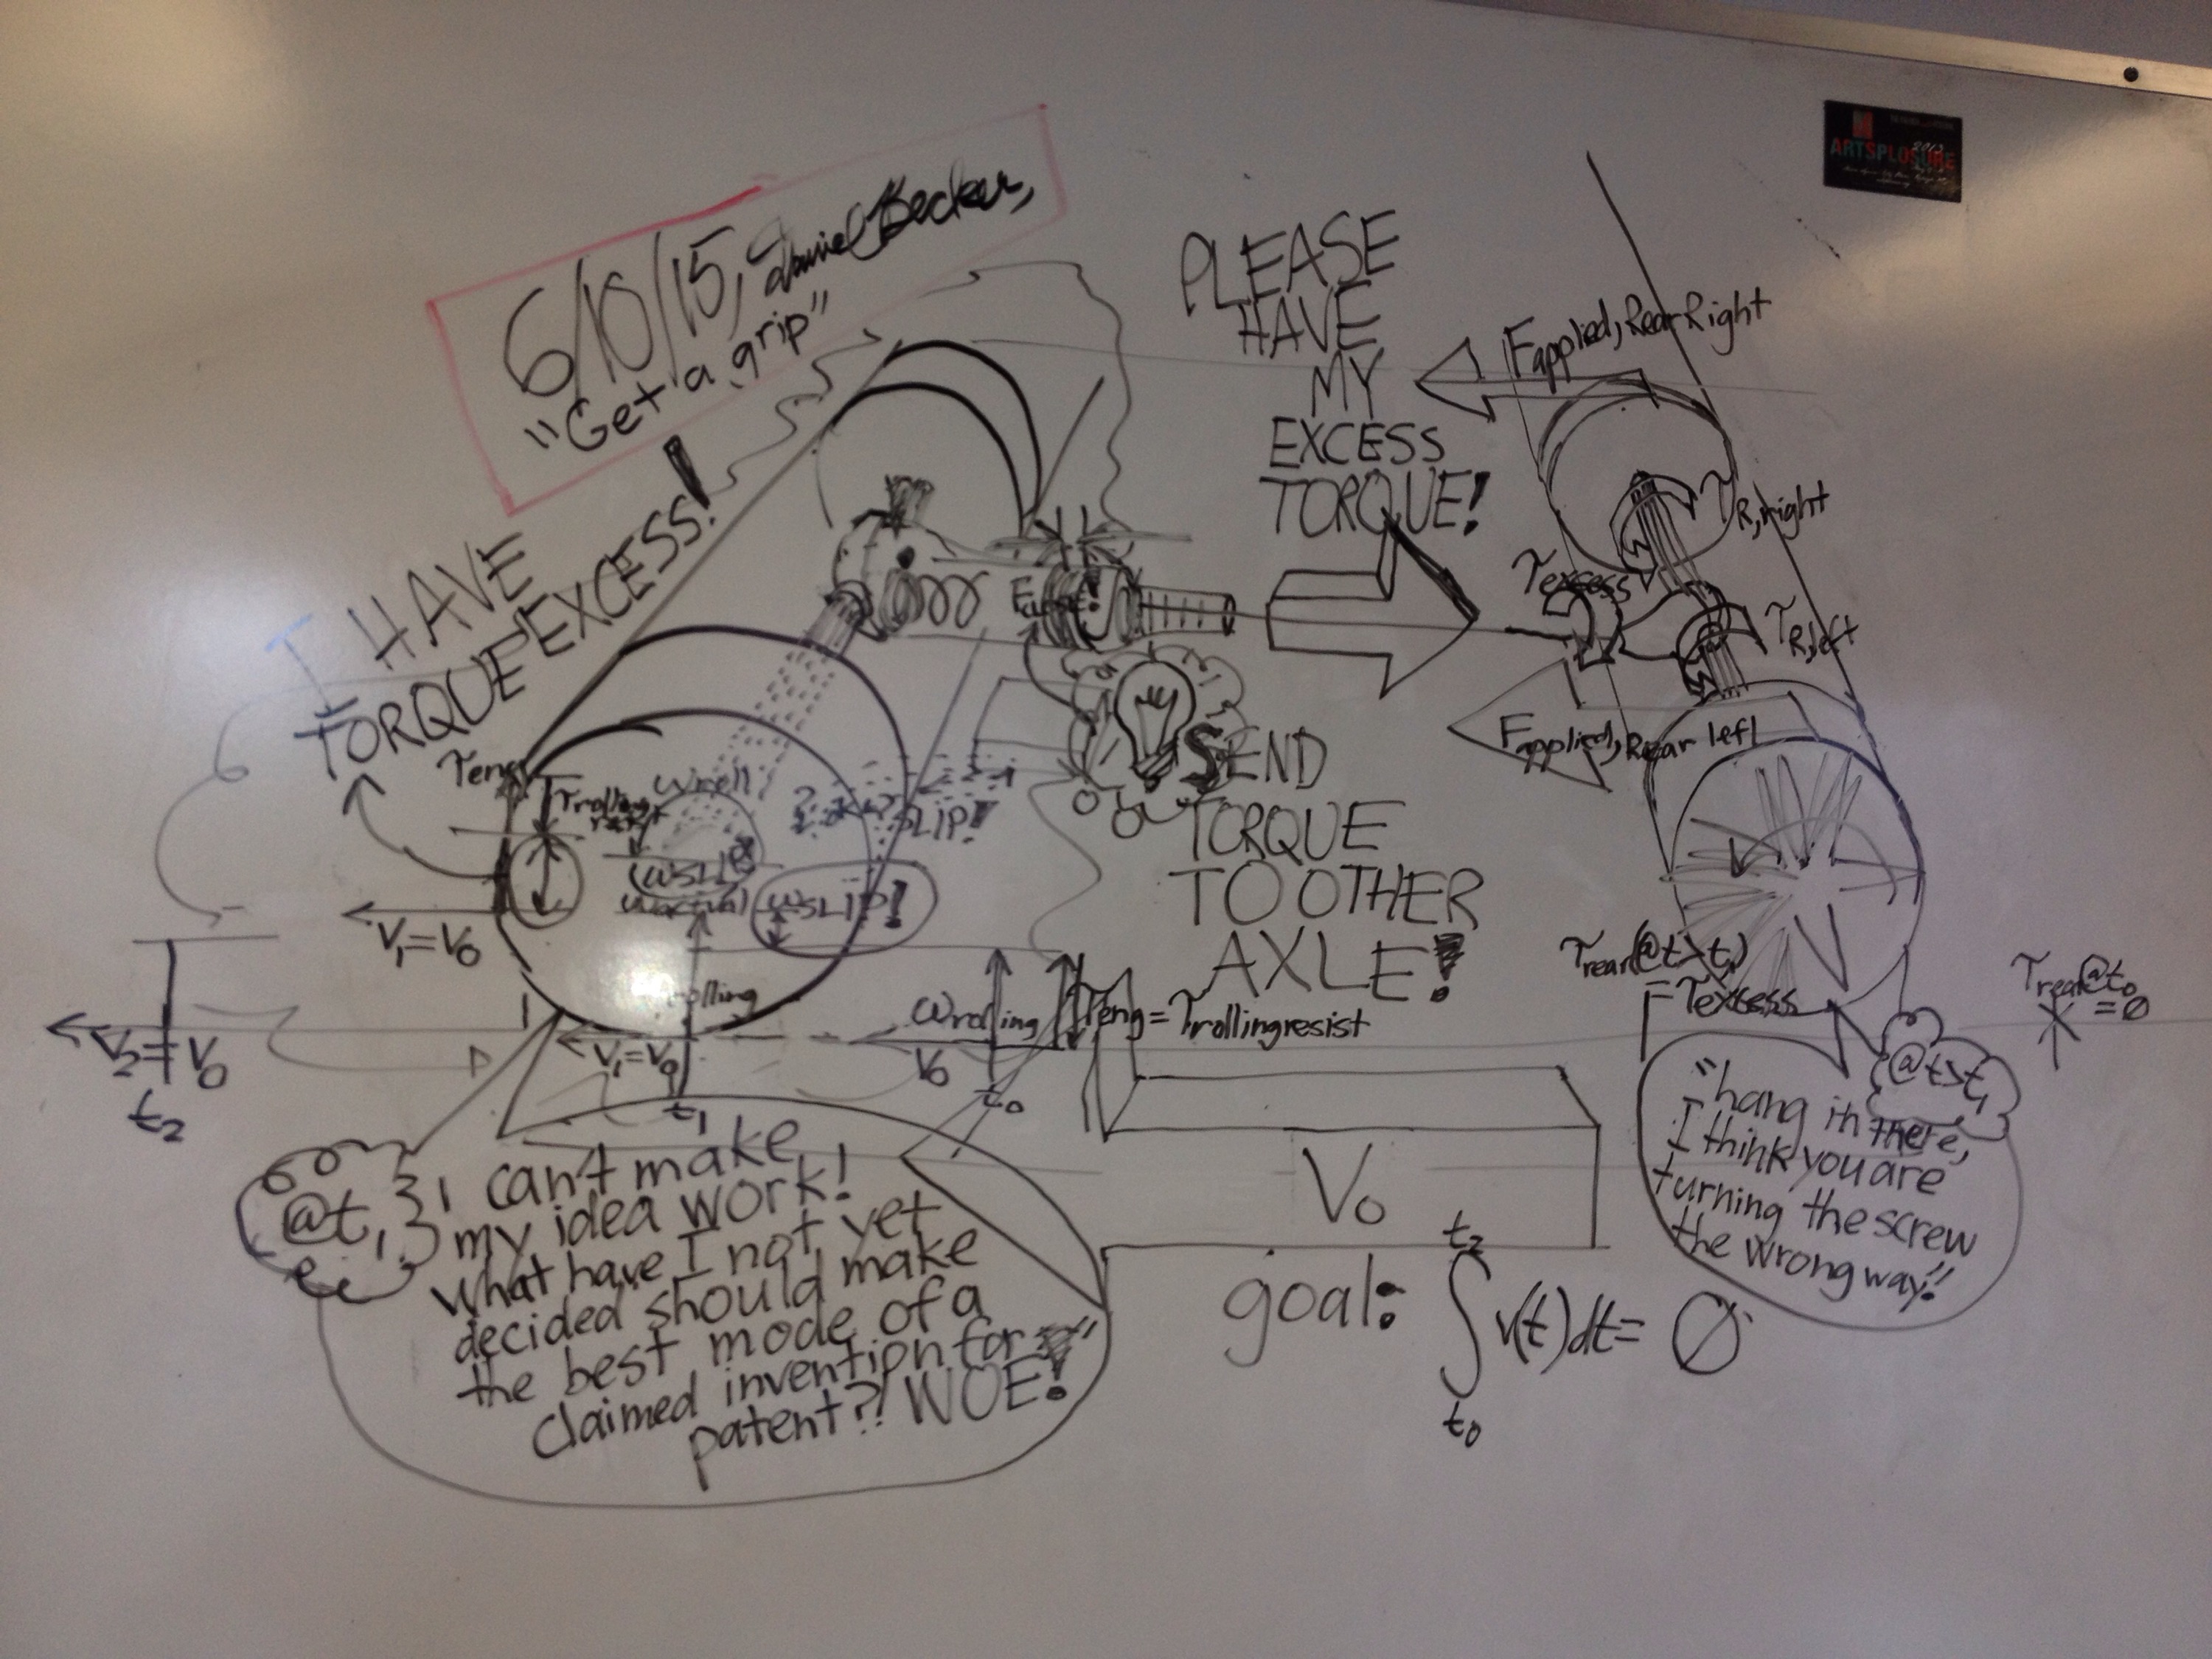 ARTSPLOSURE
2013
6/10/15, Daniel Becker,
"Get a grip"
I HAVE
TORQUE EXCESS!
PLEASE
HAVE
MY
EXCESS
TORQUE!
F applied, Rear Right
τR,right
τexcess
τR,left
F applied, Rear left
SEND
TORQUE
TO OTHER
AXLE!
τeng
τrolling
ωroll
SLIP!
ωSLIP!
V₁=V₀
V₂=V₀
t₂
V₁=V₀
t₁
ωrolling
V₀
t₀
τeng=τrollingresist
τrear(@t>t₁)
=τexcess
τrear@t₀
=0
@t>t₁
"hang in there,
I think you are
turning the screw
the wrong way!"
@t₁
I can't make
my idea work!
What have I not yet
decided should make
the best mode of a
claimed invention for
patent?! WOE!"
V₀
goal: ∫ t₀ t₂ v(t)dt= ∅